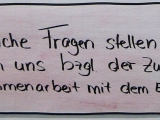 che Fragen stellen
n uns bzgl der Zu
menarbeit mit dem E